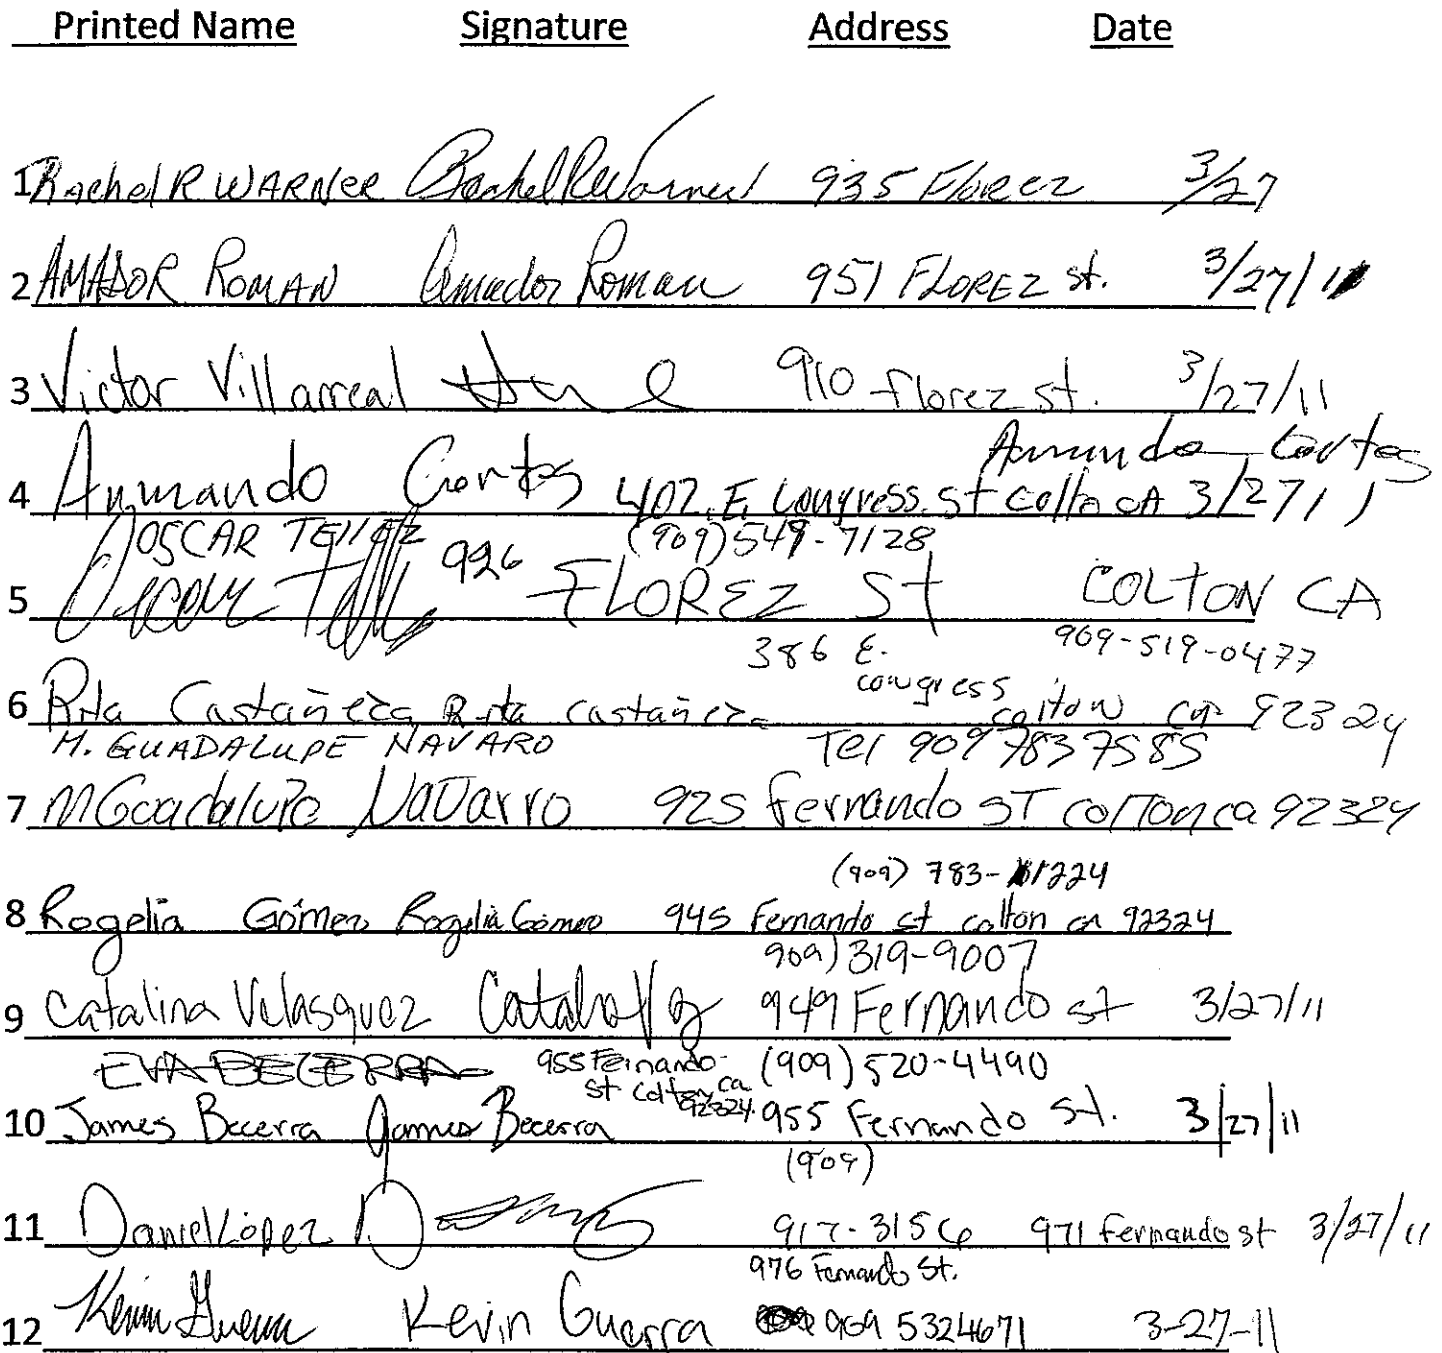 Printed Name Signature Address Date
1 Rachel R WARNER Rachel R Warner 935 Florez 3/27
2 AMADOR ROMAN Amador Roman 951 FLOREZ st. 3/27/11
3 Victor Villarreal 910 florez st. 3/27/11
Armando Cortes
4 Armando Cortes 407 E, Congress. st Colto CA 3/27/11
OSCAR TELLEZ (909) 549-7128
5 Oscar Tellez 926 FLOREZ St COLTON CA
386 E. 909-519-0477
congress
6 Rita Castañeda Rita castañeda colton ca 92324
M. GUADALUPE NAVARO Tel 909 783 7585
7 M Guadalupe Navarro 925 Fernando ST colton ca 92324
(909) 783-1224
8 Rogelia Gómez Rogelia Gómez 945 Fernando st colton ca 92324
909) 319-9007
9 Catalina Velasquez 949 Fernando st 3/27/11
EVA BECERRA 955 Fernando (909) 520-4490
st Colton, ca
92324.
10 James Becerra James Becerra 955 Fernando St. 3/27/11
(909)
11 Daniel López 917-3156 971 Fernando st 3/27/11
976 Fernando St.
12 Kevin Guerra Kevin Guerra 909 5324671 3-27-11